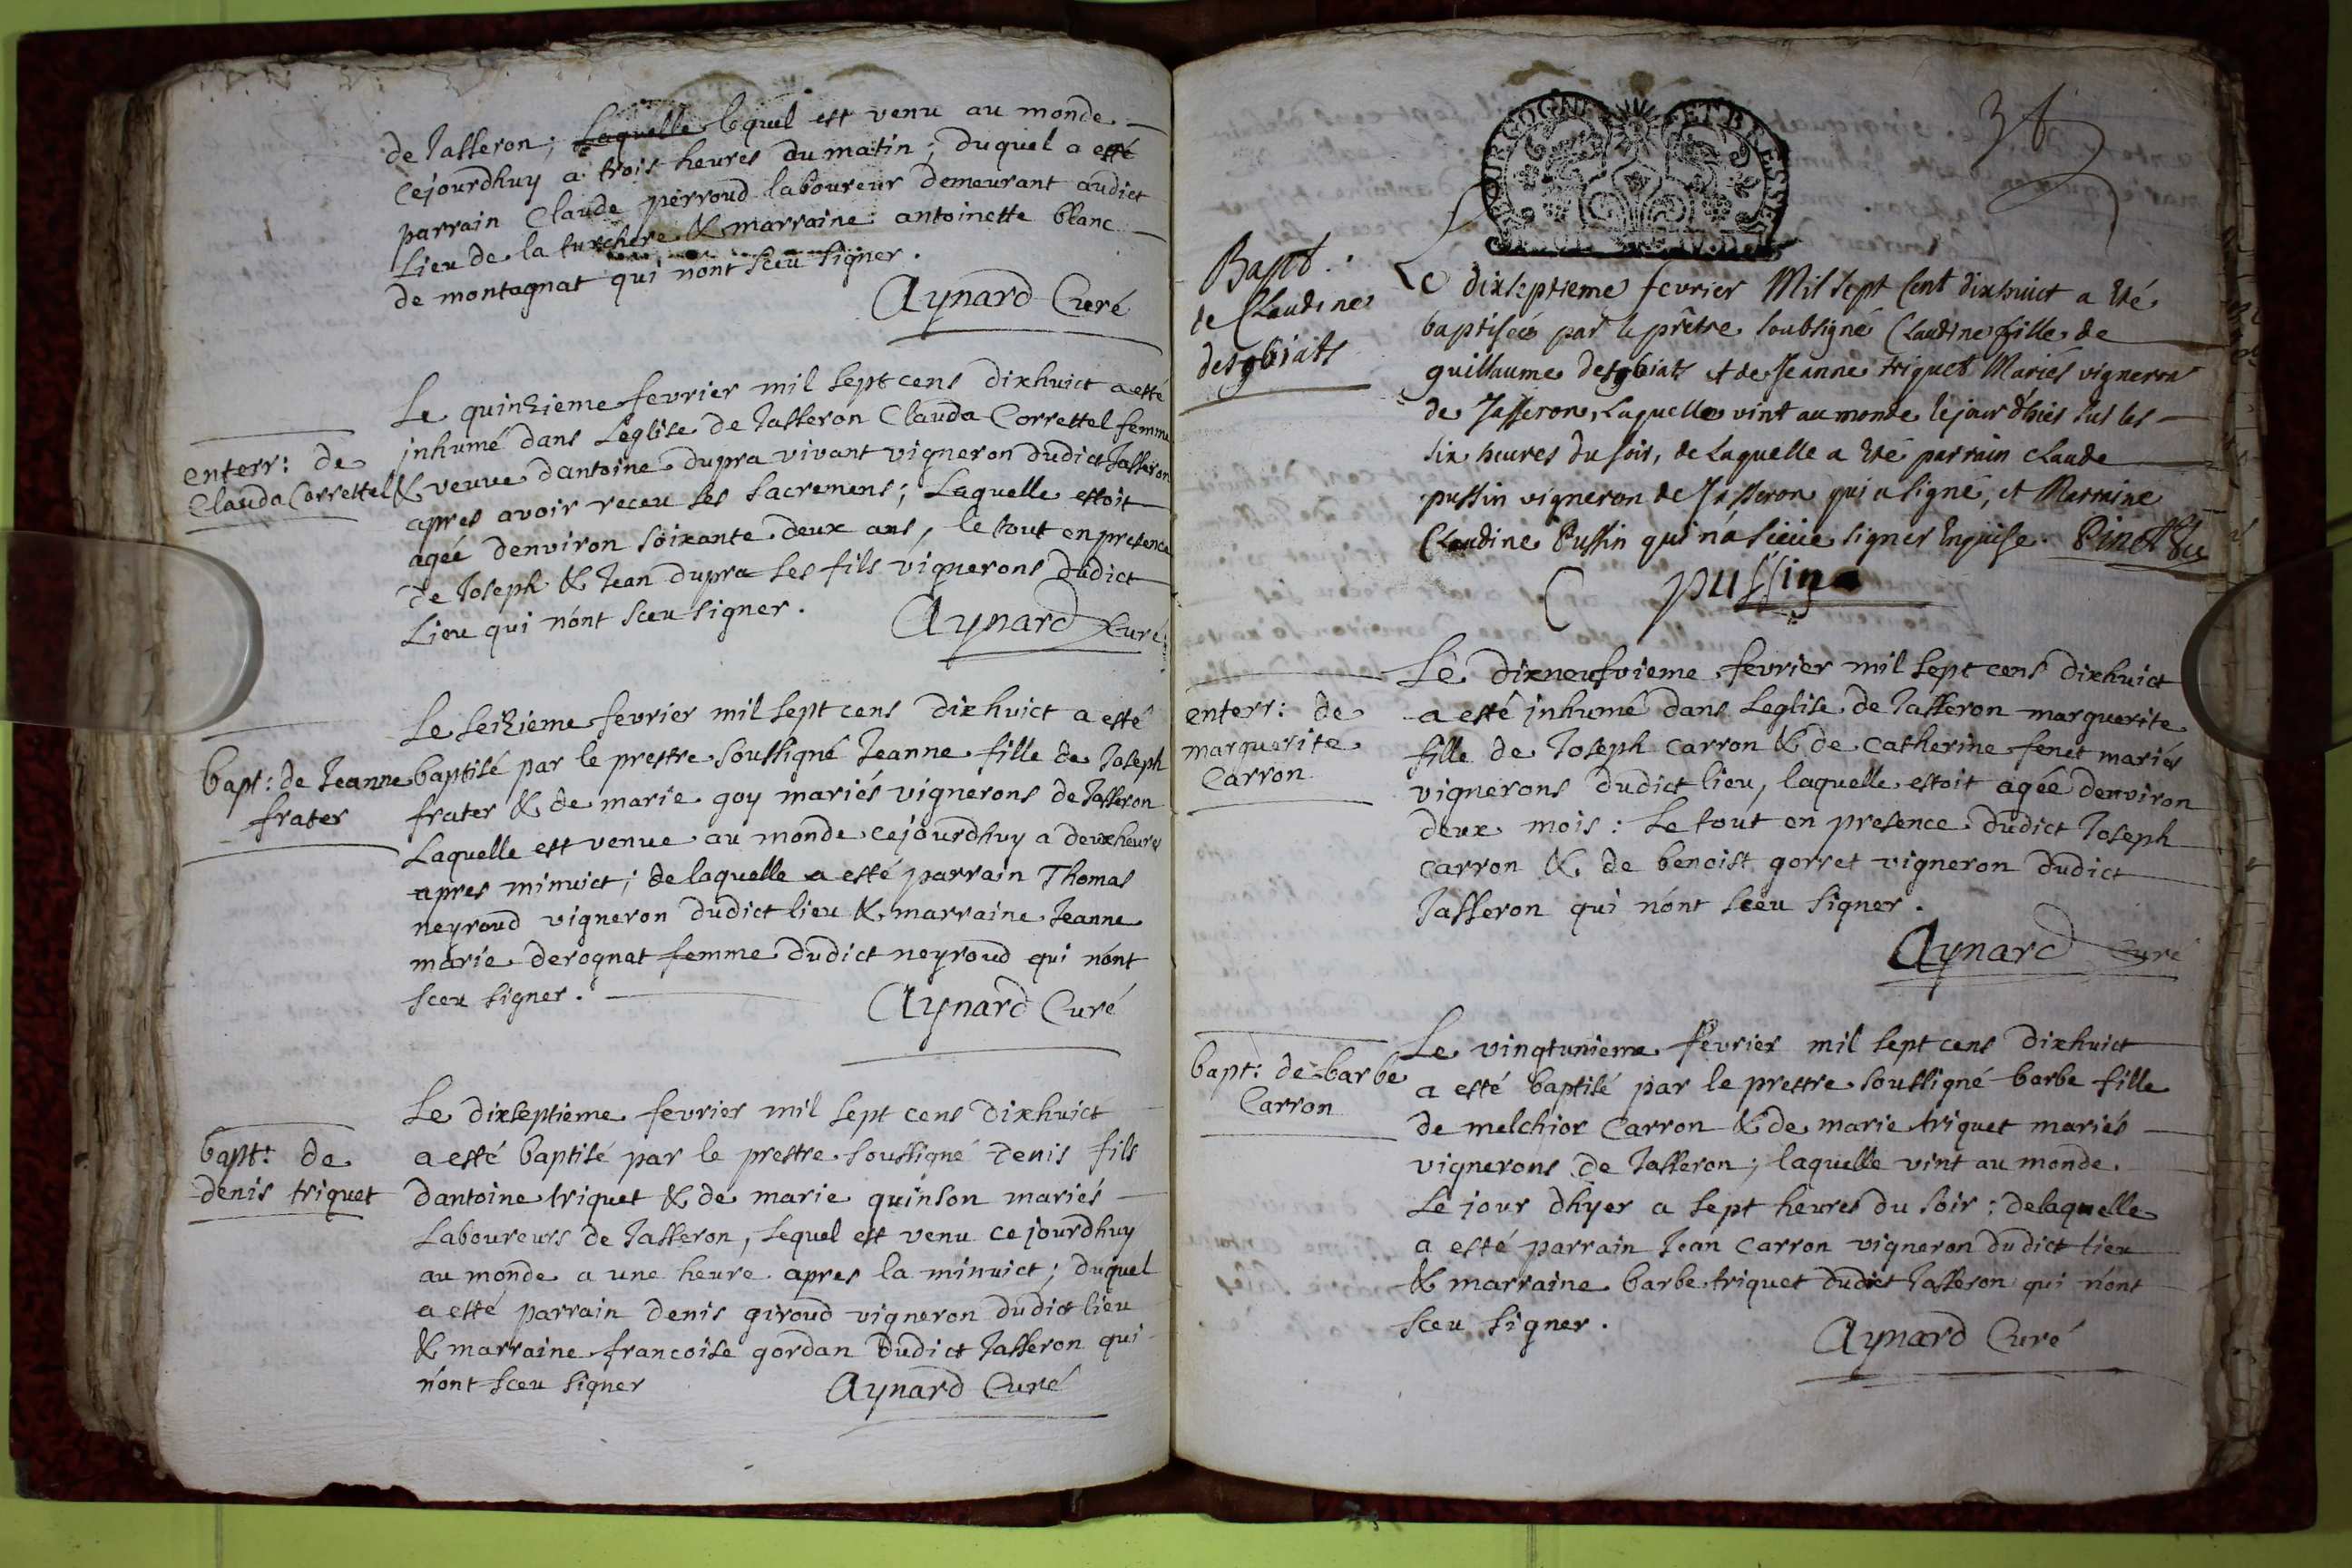 de Jasseron; Laquelle lequel est venu au monde
cejourdhuy a trois heures du matin; duquel a esté
parrain Claude perroud laboureur demeurant audict
Lieu de la turchere & marraine antoinette blanc
de montagnat qui n'ont sceu signer.
Aynard Curé
enterr: de
Clauda Correttel
Le quinzieme fevrier mil sept cens dixhuict a esté
jnhumé dans Leglise de Jasseron Clauda Correttel femme
& veuve dantoine dupra vivant vigneron dudict Jasseron
apres avoir receu ses sacremens; Laquelle estoit
agée denviron soixante deux ans, le tout en presence
de Joseph & Jean dupra ses fils vignerons dudict
Lieu qui n'ont sceu signer.
Aynard Curé
bapt: de Jeanne
frater
Le seizieme fevrier mil sept cens dixhuict a esté
baptisé par le prestre soussigné Jeanne fille de Joseph
frater & de marie goy mariés vignerons de Jasseron
Laquelle est venue au monde cejourdhuy a deux heures
apres minuict; de laquelle a esté parrain Thomas
neyroud vigneron dudict lieu & marraine Jeanne
marie derognat femme dudict neyroud qui n'ont
sceu signer.
Aynard Curé
bapt: de
denis triquet
Le dixseptieme fevrier mil sept cens dixhuict
a esté baptisé par le prestre soussigné denis fils
dantoine triquet & de marie quinson mariés
Laboureurs de Jasseron, lequel est venu ce jourdhuy
au monde a une heure apres la minuict; duquel
a esté parrain denis giroud vigneron dudict lieu
& marraine francoise gordan dudict Jasseron qui
n'ont sceu signer
Aynard Curé
BOURGOGNE ET BRESSE
Bapt.
de Claudine
desgbiats
Le dixseptieme fevrier Mil sept Cent dixhuict a été
baptisée par le prêtre soubsigné Claudine fille de
guillaume desgbiats et de Jeanne triquet Mariés vigneron
de Jasseron, Laquelle vint au monde le jour d'hier sus les
six heures du soir, de Laquelle a été parrain Claude
pussin vigneron de Jasseron qui a signé, et Marraine
Claudine Pussin qui n'a sceue signer Enquise.
pussin
enterr: de
marguerite
Carron
Le dixneufvieme fevrier mil sept cens dixhuict
a esté jnhumé dans Leglise de Jasseron marguerite
fille de Joseph Carron & de Catherine fenet mariés
vignerons dudict lieu, laquelle estoit agée denviron
deux mois: Le tout en presence dudict Joseph
Carron & de benoist gorret vigneron dudict
Jasseron qui n'ont sceu signer.
Aynard Curé
bapt: de barbe
Carron
Le vingtunieme fevrier mil sept cens dixhuict
a esté baptisé par le prestre soussigné barbe fille
de melchior Carron & de marie triquet mariés
vignerons de Jasseron; laquelle vint au monde
Le jour dhyer a sept heures du soir: delaquelle
a esté parrain Jean Carron vigneron dudict lieu
& marraine barbe triquet dudict Jasseron qui n'ont
sceu signer.
Aynard Curé